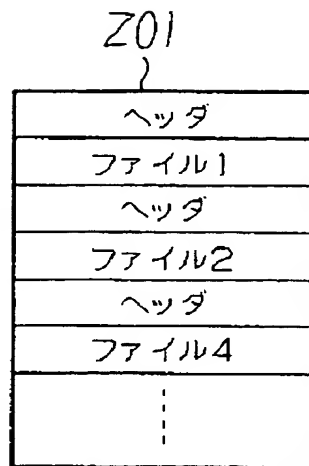 Z01
ヘッダ
ファイル1
ヘッダ
ファイル2
ヘッダ
ファイル4